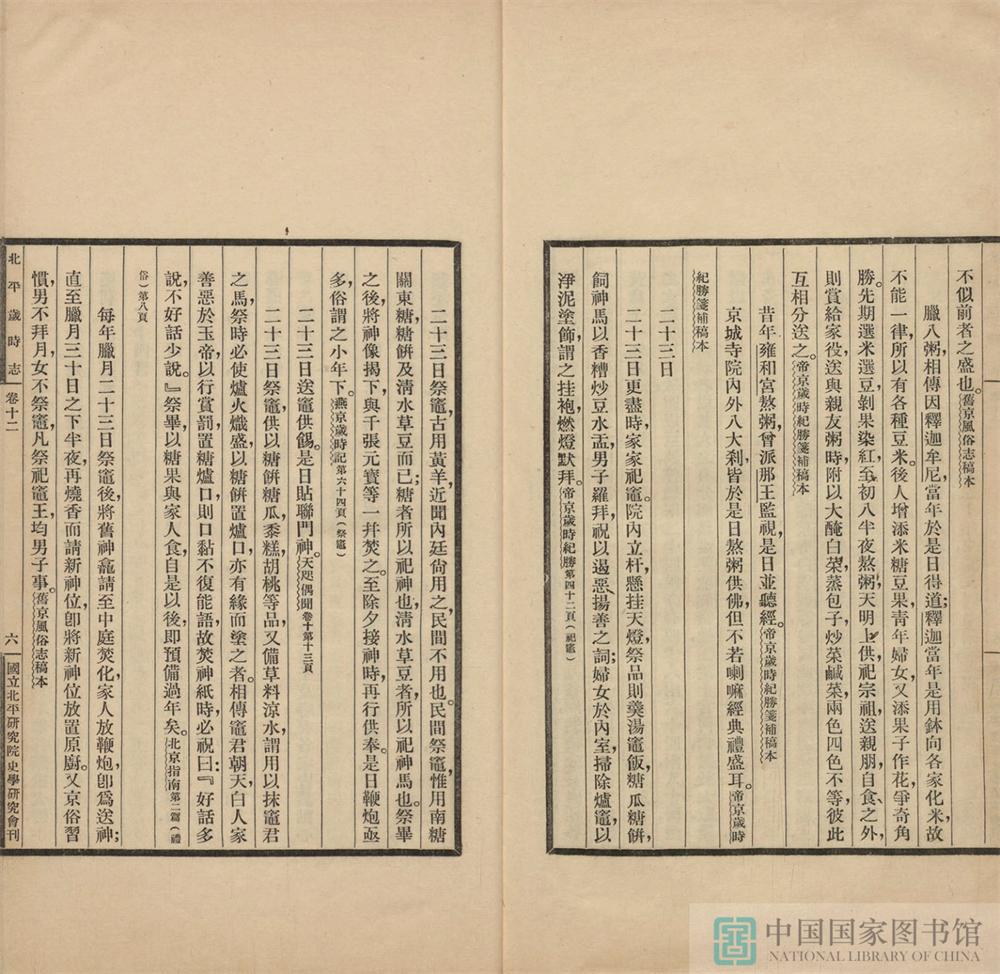 不似前者之盛也。舊京風俗志稿本
臘八粥，相傳因釋迦牟尼，當年於是日得道；釋迦當年是用鉢向各家化米，故
不能一律，所以有各種豆米。後人增添米糖豆果，青年婦女，又添果子作花，爭奇角
勝。先期選米選豆，剝果染紅，至初八半夜熬粥，天明上供，祀宗祖，送親朋，自食、之外，
則賞給家役，送與親友粥時，附以大醃白菜，蒸包子，炒菜鹹菜，兩色四色不等，彼此
互相分送之。帝京歲時紀勝箋補稿本
昔年雍和宮熬粥，曾派那王監視，是日並聽經。帝京歲時紀勝箋補稿本
京城寺院內外八大剎，皆於是日熬粥供佛，但不若喇嘛經典禮盛耳。帝京歲時
紀勝箋補稿本
二十三日
二十三日更盡時，家家祀竈，院內立杆，懸挂天燈，祭品則羹湯竈飯，糖瓜糖餅，
飼神馬以香糟炒豆水盂，男子羅拜，祝以遏惡揚善之詞；婦女於內室，掃除爐竈，以
淨泥塗飾，謂之挂袍，燃燈默拜。帝京歲時紀勝第四十二頁（祀竈）
二十三日祭竈，古用黃羊，近聞內廷尙用之，民間不用也。民間祭竈，惟用南糖
關東糖糖餅及清水草豆而已；糖者所以祀神也，清水草豆者，所以祀神馬也。祭畢
之後，將神像揭下，與千張元寶等一幷焚之。至除夕接神時，再行供奉。是日鞭炮亟
多，俗謂之小年下。燕京歲時記第六十四頁（祭竈）
二十三日送竈供餳。是日貼聯門神。天咫偶聞卷十第十三頁
二十三日祭竈，供以糖餅糖瓜，黍糕胡桃等品，又備草料涼水，謂用以抹竈君
之馬，祭時必使爐火熾盛，以糖餅置爐口，亦有緣而塗之者。相傳竈君朝天，白人家
善惡於玉帝，以行賞罰，置糖爐口，則口黏不復能語，故焚神紙時，必祝曰：『好話多
說，不好話少說。』祭畢，以糖果與家人食，自是以後，即預備過年矣。北京指南第二篇（禮
俗）第八頁
每年臘月二十三日祭竈後，將舊神龕請至中庭焚化，家人放鞭炮，卽爲送神；
直至臘月三十日之下半夜，再燒香而請新神位，卽將新神位放置原廚。又京俗習
慣，男不拜月，女不祭竈，凡祭祀竈王，均男子事。舊京風俗志稿本
北平歲時志 卷十二 六 國立北平研究院史學研究會刊
中国国家图书馆
NATIONAL LIBRARY OF CHINA